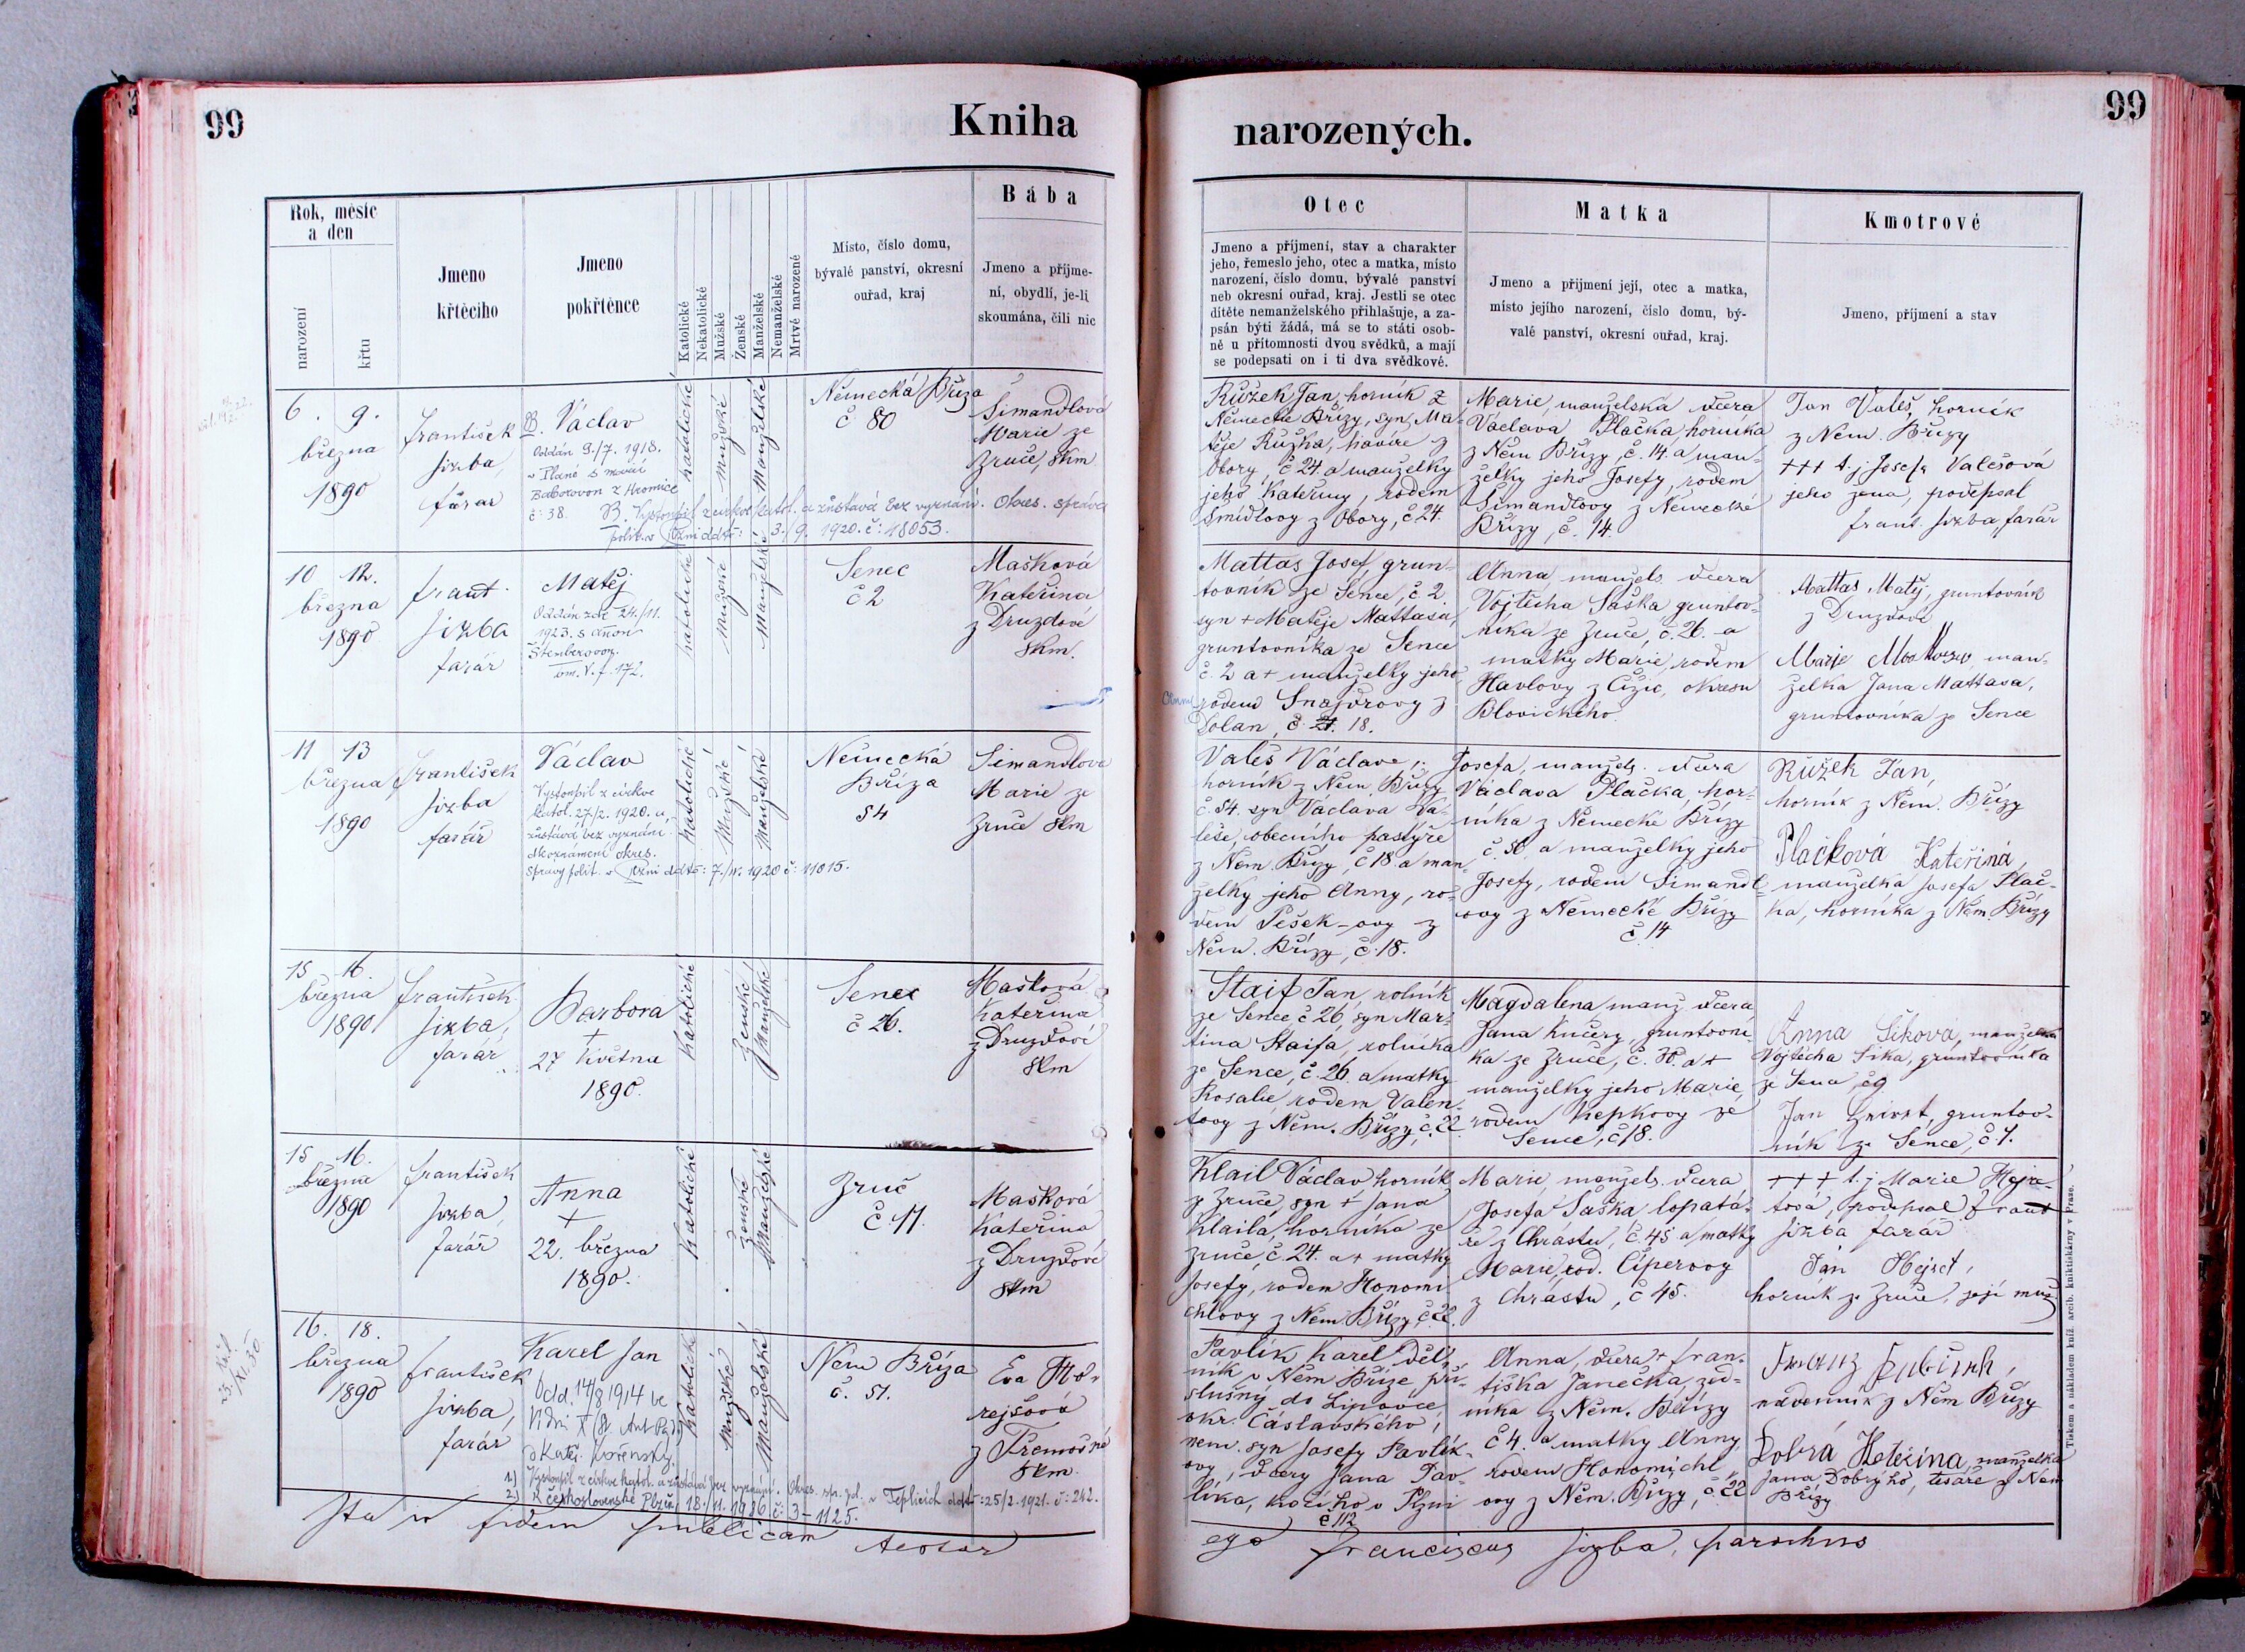 99
Kniha
narozených.
99
Rok, měsíc
a den
narození
křtu
Jmeno
křtěcího
Jmeno
pokřtěnce
Katolické
Nekatolické
Mužské
Ženské
Manželské
Nemanželské
Mrtvé narozené
Místo, číslo domu,
bývalé panství, okresní
ouřad, kraj
Bába
Jmeno a příjme-
ní, obydlí, je-li
skoumána, čili nic
Otec
Jmeno a příjmení, stav a charakter
jeho, řemeslo jeho, otec a matka, místo
narození, číslo domu, bývalé panství
neb okresní ouřad, kraj. Jestli se otec
dítěte nemanželského přihlašuje, a za-
psán býti žádá, má se to státi osob-
ně u přítomnosti dvou svědků, a mají
se podepsati on i ti dva svědkové.
Matka
Jmeno a příjmení její, otec a matka,
místo jejího narození, číslo domu, bý-
valé panství, okresní ouřad, kraj.
Kmotrové
Jmeno, příjmení a stav
6. 9.
března
1890
František
Jizba,
farář
B. Václav
Oddán 9./7. 1918.
v Plané s Marií
Baborovou z Hromice
č: 38.
B. Vystoupil z církve katol. a zůstává bez vyznání. Okres. správa
polit. v Plzni ddto: 3./9. 1920. č: 18053.
katolické
mužské
manželské
Německá Bříza
č 80
Šimandlová
Marie ze
Zruče, skm
Růžek Jan, horník z
Německé Břízy, syn Ma-
těje Růžka, havíře z
Obory, č 24. a manželky
jeho Kateřiny, rodem
Šmídlovy z Obory, č 24.
Marie, manželská dcera
Václava Plačka, horníka
z Něm Břízy, č. 14. a man-
želky jeho Josefy, rodem
Šimandlovy z Německé
Břízy, č. 14.
Jan Valeš, horník
z Něm. Břízy
+++ t. j Josefa Valešová
jeho žena, podepsal
Frant. Jizba, farář
10 12.
března
1890
Frant.
Jizba
farář
Matěj
Oddán zde 24./11.
1923. s Annou
Štenberovou.
om. V. f. 172.
katolické
mužské
manželské
Senec
č 2
Mašková
Kateřina
z Druzdové
skm.
Mattas Josef, grun-
tovník ze Sence, č. 2
syn + Matěje Mattasa,
gruntovníka ze Sence
č. 2 a + manželky jeho
Anny
rodem Snajdrovy z
Dolan, č. 21. 18.
Anna manžels. dcera
Vojtěcha Saška gruntov-
níka ze Zruče, č. 26. a
matky Marie, rodem
Havlovy z Čižic, okresu
Blovického.
Mattas Matěj, gruntovník
z Druzdové
Marie, man-
želka Jana Mattasa,
gruntovníka ze Sence
11 13
března
1890
František
Jizba
farář
Václav
Vystoupil z církve
katol. 27/2. 1920. a
zůstává bez vyznání
dle oznámení okres.
správy polit. v Plzni ddto: 7./IV. 1920 č: 11015.
katolické
mužské
manželské
Německá
Bříza
54
Šimandlová
Marie ze
Zruče skm
Valeš Václav,
horník z Něm. Břízy
č. 54. syn Václava Va-
leše, obecního pastýře
z Něm. Břízy, č 18 a man-
želky jeho Anny, ro-
dem Pešek-ovy z
Něm. Břízy, č. 18.
Josefa, manžels. dcera
Václava Plačka, hor-
níka z Německé Břízy
č. 80. a manželky jeho
Josefy, rodem Šimandl-
ovy z Německé Břízy
č 14
Růžek Jan,
horník z Něm. Břízy
Plačková Kateřina,
manželka Josefa Plač-
ka, horníka z Něm. Břízy
15 16.
března
1890
František
Jizba,
farář
Barbora
+
27 května
1890.
katolické
ženské
manželské
Senec
č 26.
Mašková
Kateřina
z Druzdové
skm
Staif Jan, rolník
ze Sence č 26, syn Mar-
tina Staifa, rolníka
ze Sence, č. 26. a matky
Rosalie rodem Valen-
tovy z Něm. Břízy, č. 22
Magdalena, manž dcera
Jana Kučery, gruntovní-
ka ze Zruče, č. 30. a +
manželky jeho Marie,
rodem Kepkovy ze
Sence, č 18.
Anna Šiková, manželka
Vojtěcha Šika, gruntovníka
ze Sence, č 9
Jan, gruntov-
ník ze Sence, č. 7.
15 16.
března
1890
František
Jizba,
farář
Anna
+
22. března
1890.
katolické
ženské
manželské
Zruč
č 11.
Mašková
Kateřina
z Druzdové
skm
Klail Václav horník
ze Zruče, syn + Jana
Klaila, horníka ze
Zruče, č 24. a + matky
Josefy, rodem Honomi-
chlovy z Něm. Břízy, č. 22.
Marie, manžels. dcera
Josefa Saška lopatá-
ře z Chrástu, č. 45 a matky
Marie, rod. Cíperovy
z Chrástu, č 45.
+++ t. j Marie Hejre-
tová, podepsal Frant
Jizba farář
Jan Hejret,
horník ze Zruče, její muž
16. 18.
března
1890
František
Jizba,
farář
Karel Jan
Odd. 14/8 1914 ve
Vídni X
katolické
mužské
manželské
1.) Vystoupil z církve katol. a zůstává bez vyznání. Okres. spr. pol. v Teplicích ddto: 25/2. 1921. č: 242.
2.) K československé Plzeň 18./VI. 1936 č: 3-1125.
Něm Bříza
č. 51.
Eva
z Třemošné
skm.
Pavlík Karel, děl-
ník v Něm Bříze pří-
slušný do Lipovce,
okr. Čáslavského,
nem. syn Josefy Pavlík-
ovy, dcery Jana Pav-
líka, v Plzni
č 112
Anna, dcera + Fran-
tiška Janečka, zed-
níka z Něm. Břízy
č 4. a matky Anny,
rodem Honomichl-
ovy z Něm. Břízy, č 22
Franz
nádenník z Něm Břízy
Dobrá Kateřina, manželka
Jana Dobrýho, tesaře z Něm
Břízy
Ita in fidem publicam testor
ego Franciscus Jizba, parochus
Tiskem a nákladem kníž. arcib. knihtiskárny v Praze.